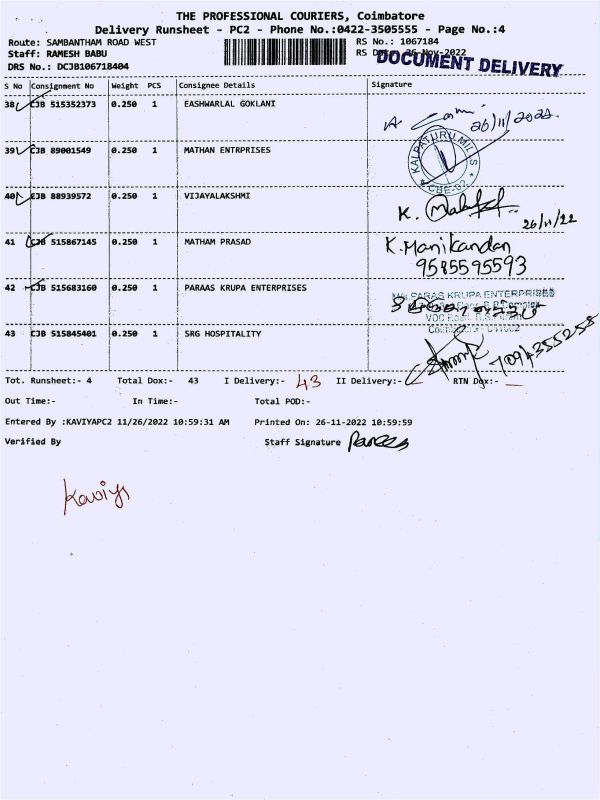 THE PROFESSIONAL COURIERS, Coimbatore
Delivery Runsheet - PC2 - Phone No.:0422-3505555 - Page No.:4
Route: SAMBANTHAM ROAD WEST RS No.: 1067184
Staff: RAMESH BABU RS Date: 26-Nov-2022
DOCUMENT DELIVERY
DRS No.: DCJB106718404
S No Consignment No Weight PCS Consignee Details Signature
38 CJB 515352373 0.250 1 EASHWARLAL GOKLANI
26/11/2022
39 CJB 89001549 0.250 1 MATHAN ENTRPRISES
KALPATURU MILLS
CBE-02
40 EJB 88939572 0.250 1 VIJAYALAKSHMI
K.
26/11/22
41 CJB 515867145 0.250 1 MATHAM PRASAD K. Manikandan
9585595593
42 CJB 515683160 0.250 1 PARAAS KRUPA ENTERPRISES
PARAS KRUPA ENTERPRISES
43 CJB 515845401 0.250 1 SRG HOSPITALITY
Tot. Runsheet:- 4 Total Dox:- 43 I Delivery:- 43 II Delivery:- RTN Dox:-
Out Time:- In Time:- Total POD:-
Entered By :KAVIYAPC2 11/26/2022 10:59:31 AM Printed On: 26-11-2022 10:59:59
Verified By Staff Signature
Kaviya